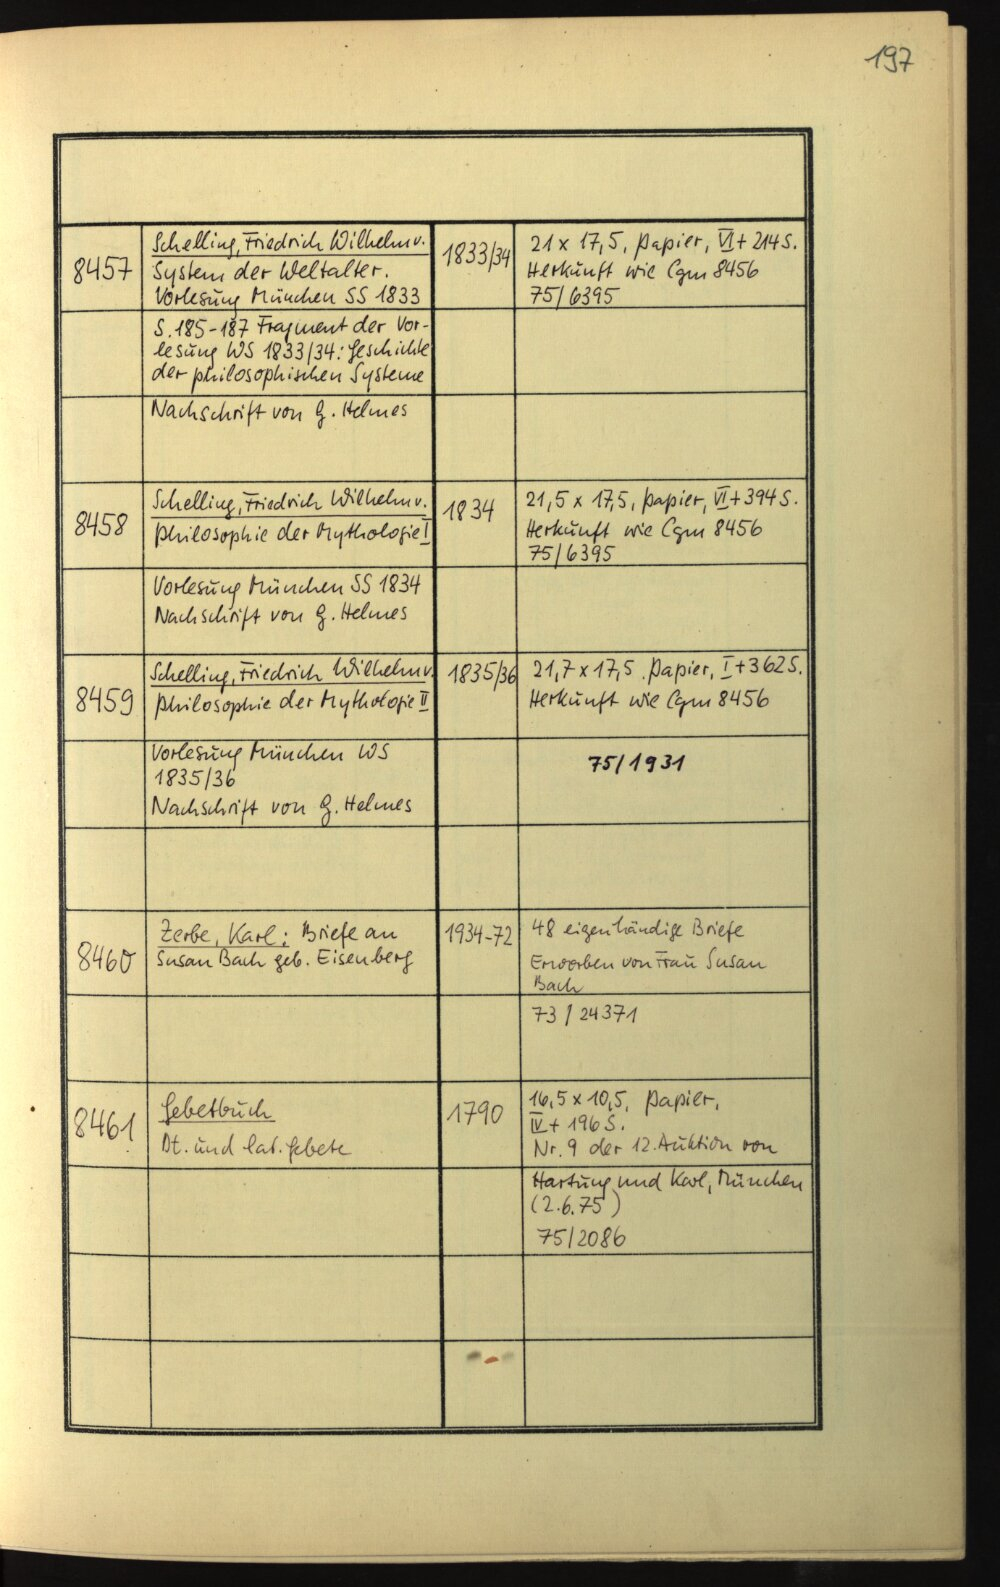 197
8457
Schelling, Friedrich Wilhelm v.
System der Weltalter.
Vorlesung München SS 1833
1833/34
21 x 17,5, Papier, VI + 214 S.
Herkunft wie Cgm 8456
75/6395
S. 185-187 Fragment der Vor-
lesung WS 1833/34: Geschichte
der philosophischen Systeme
Nachschrift von G. Helmes
8458
Schelling, Friedrich Wilhelm v.
Philosophie der Mythologie I
1834
21,5 x 17,5, Papier, VI + 394 S.
Herkunft wie Cgm 8456
75/6395
Vorlesung München SS 1834
Nachschrift von G. Helmes
8459
Schelling, Friedrich Wilhelm v.
Philosophie der Mythologie II
1835/36
21,7 x 17,5. Papier, I + 362 S.
Herkunft wie Cgm 8456
Vorlesung München WS
1835/36
Nachschrift von G. Helmes
75/1931
8460
Zerbe, Karl: Briefe an
Susan Bach geb. Eisenberg
1934-72
48 eigenhändige Briefe
Erworben von Frau Susan
Bach
73/24371
8461
Gebetbuch
Dt. und lat. Gebete
1790
16,5 x 10,5, Papier,
IV + 196 S.
Nr. 9 der 12. Auktion von
Hartung und Karl, München
(2.6.75)
75/2086